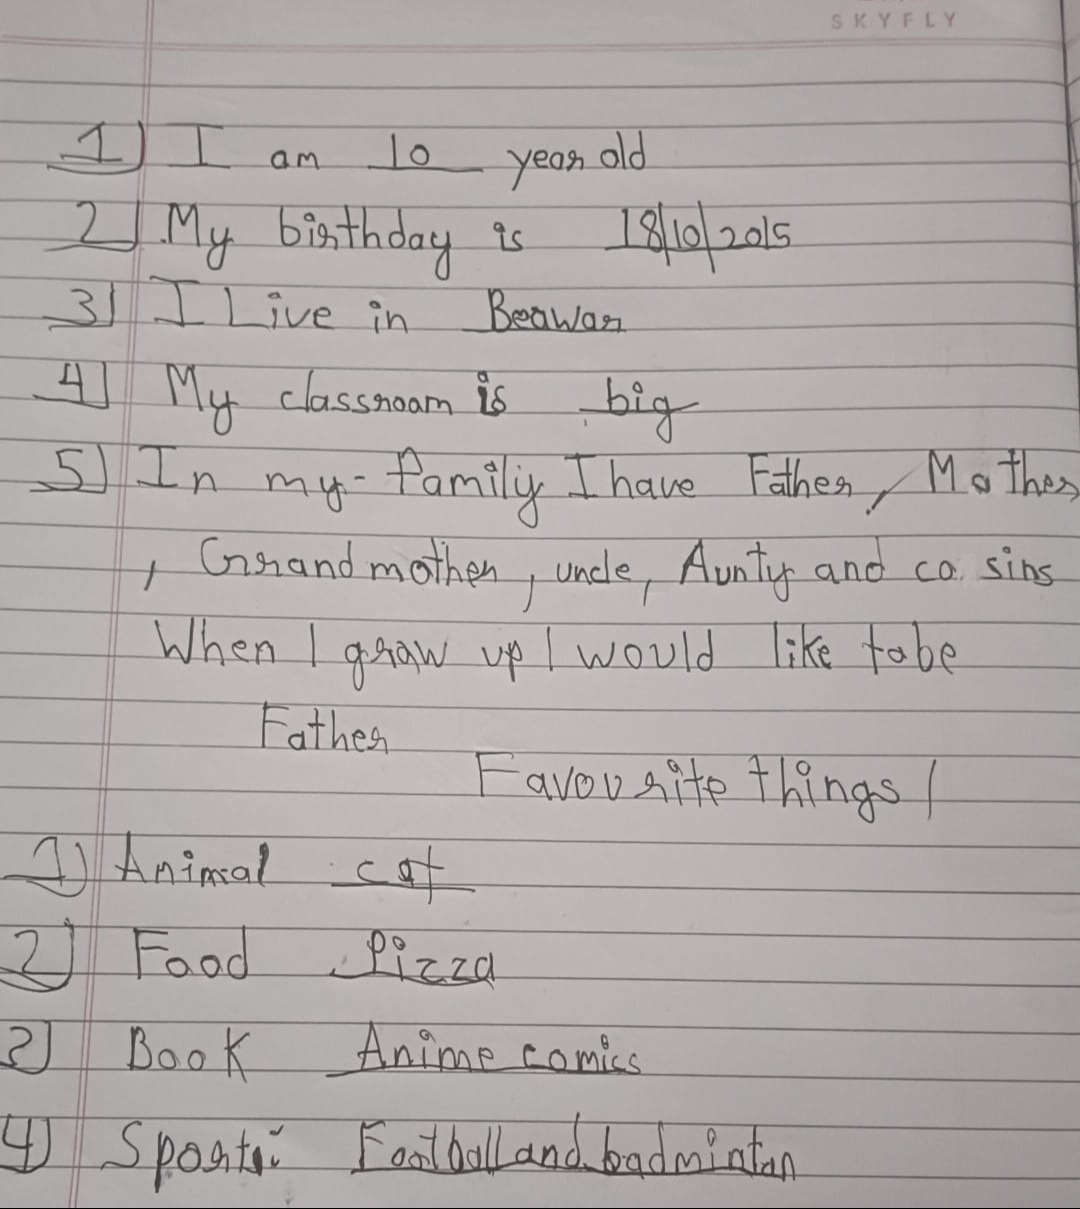 SKYFLY
1) I am 10 year old
2) My birthday is 18/10/2015
3) I Live in Beawar
4) My classroom is big
5) In my family I have Father, Mother
, Grandmother, uncle, Aunty and co sins
When I graw up I would like to be
Father
Favourite things /
1) Animal cat
2) Food Pizza
3) Book Anime comics
4) Sports: Football and badmintan